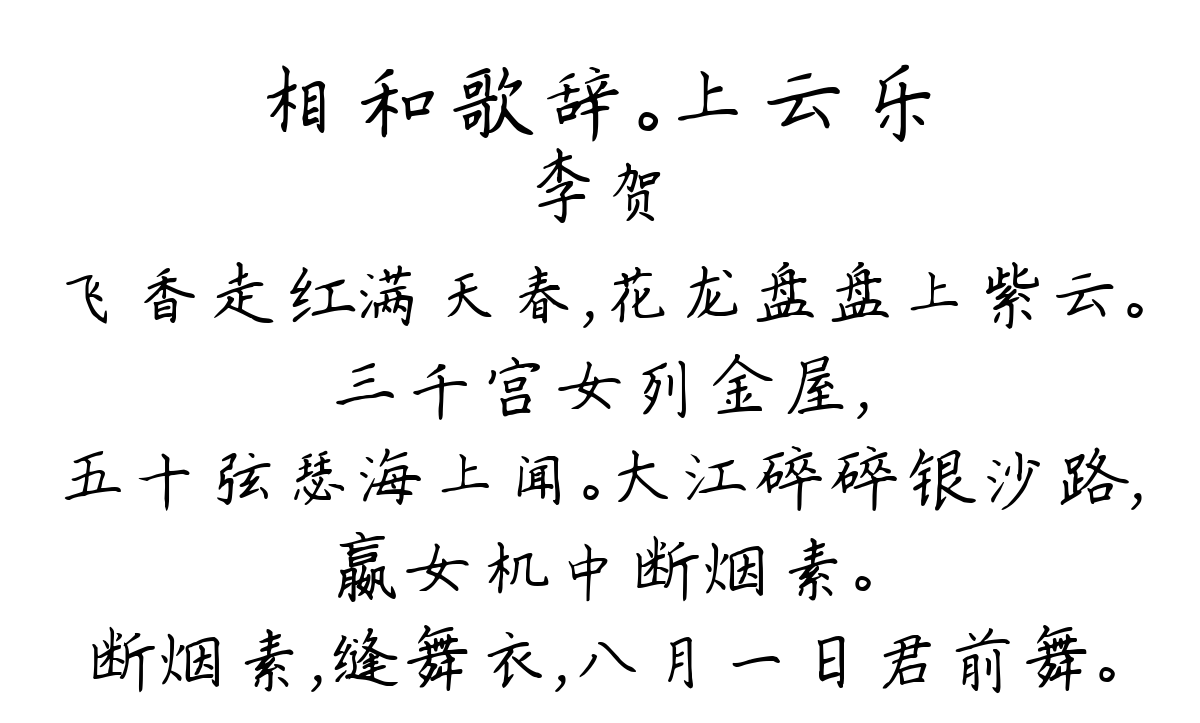 相和歌辞。上云乐
李贺
飞香走红满天春,花龙盘盘上紫云。
三千宫女列金屋,
五十弦瑟海上闻。大江碎碎银沙路,
嬴女机中断烟素。
断烟素,缝舞衣,八月一日君前舞。